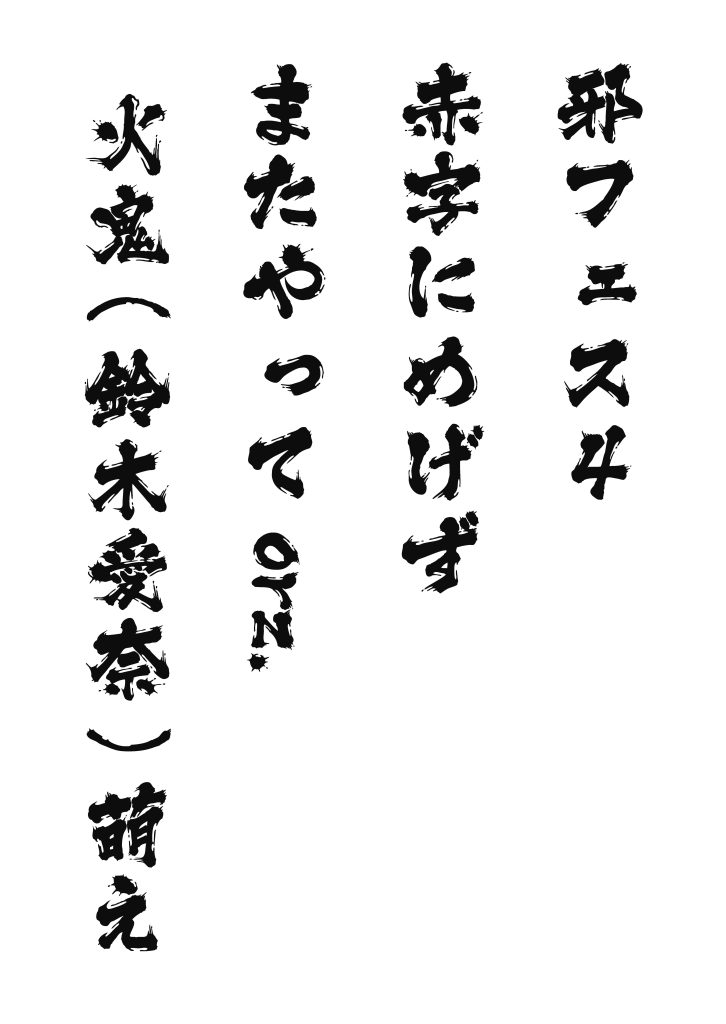 邪フェス4
赤字にめげず
またやってorz.
火鬼（鈴木愛奈）萌え